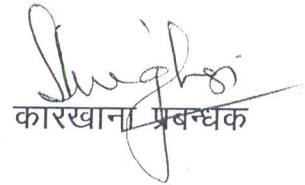 कारखाना प्रबन्धक